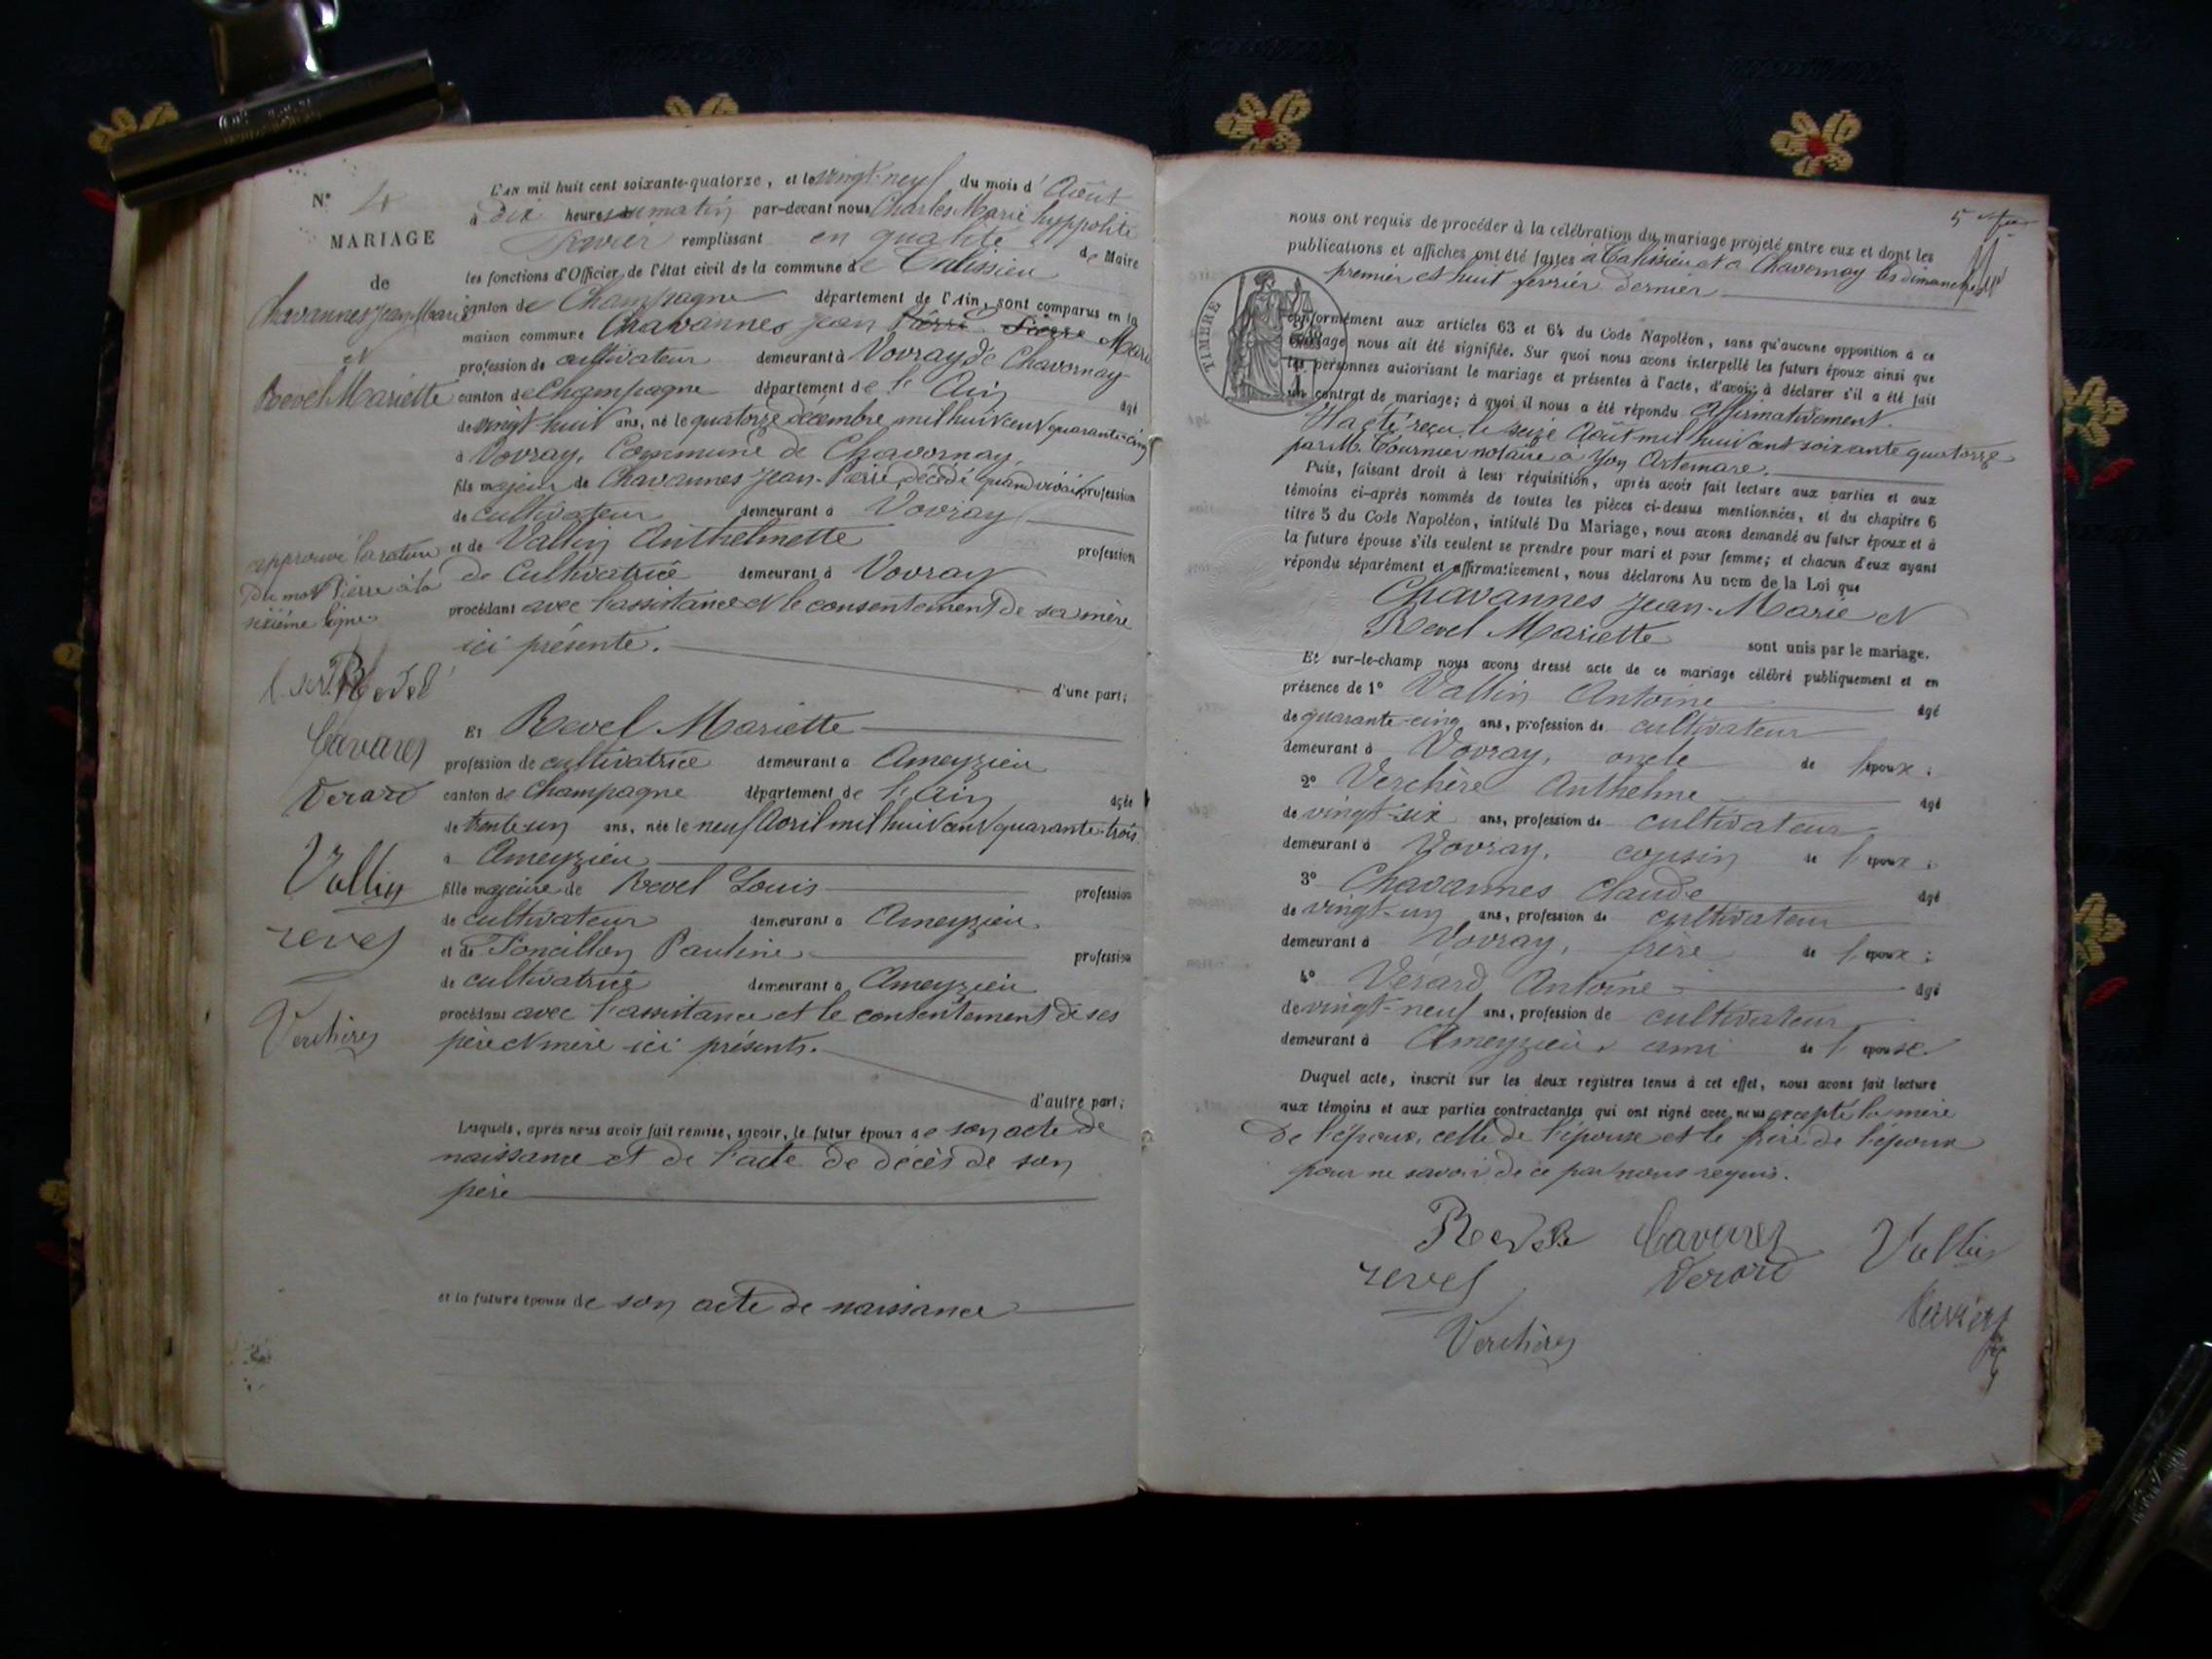 N° 4
MARIAGE
de
Chavannes Jean-Marie
et
Revel Mariette
L'AN mil huit cent soixante-quatorze, et le vingt-neuf du mois d'Août
à dix heures du matin par-devant nous Charles Marie hyppolite
remplissant en qualité de Maire
les fonctions d'Officier de l'état civil de la commune de Talissieu
canton de Champagne département de l'Ain, sont comparus en la
maison commune Chavannes Jean Pierre Pierre Marie
profession de cultivateur demeurant à Vovray de Chavornay
canton de Champagne département de l'Ain âgé
de vingt-huit ans, né le quatorze décembre mil huit cent quarante-cinq
à Vovray, Commune de Chavornay,
fils majeur de Chavannes Jean-Pierre décédé quand vivait profession
de cultivateur demeurant à Vovray
et de Vallin Anthelmette profession
de Cultivatrice demeurant à Vovray
procédant avec l'assistance et le consentement de sa mère
ici présente.
d'une part;
approuvé la rature
du mot Pierre à la
sixième ligne
Revel
Cavares
Verard
Vallin
revel
Verchères
Et Revel Mariette
profession de cultivatrice demeurant à Ameyzieu
canton de Champagne département de l'Ain âgée
de trente-un ans, née le neuf Avril mil huit cent quarante-trois
à Ameyzieu
fille majeure de Revel Louis profession
de cultivateur demeurant à Ameyzieu
et de Poncillon Pauline profession
de cultivatrice demeurant à Ameyzieu
procédant avec l'assistance et le consentement de ses
père et mère ici présents.
d'autre part;
Lesquels, après nous avoir fait remise, savoir, le futur époux de son acte de
naissance et de l'acte de décès de son
père
et la future épouse de son acte de naissance
nous ont requis de procéder à la célébration du mariage projeté entre eux et dont les
publications et affiches ont été faites à Talissieu et à Chavornay les dimanches
premier et huit février dernier
TIMBRE
conformément aux articles 63 et 64 du Code Napoléon, sans qu'aucune opposition à ce
mariage nous ait été signifiée. Sur quoi nous avons interpellé les futurs époux ainsi que
les personnes autorisant le mariage et présentes à l'acte, d'avoir à déclarer s'il a été fait
un contrat de mariage; à quoi il nous a été répondu Affirmativement.
Il a été reçu le seize Août mil huit cent soixante quatorze
par M. Tournier notaire à Yon Artemare.
Puis, faisant droit à leur réquisition, après avoir fait lecture aux parties et aux
témoins ci-après nommés de toutes les pièces ci-dessus mentionnées, et du chapitre 6
titre 5 du Code Napoléon, intitulé Du Mariage, nous avons demandé au futur époux et à
la future épouse s'ils veulent se prendre pour mari et pour femme; et chacun d'eux ayant
répondu séparément et affirmativement, nous déclarons Au nom de la Loi que
Chavannes Jean-Marie et
Revel Mariette sont unis par le mariage.
Et sur-le-champ nous avons dressé acte de ce mariage célébré publiquement et en
présence de 1° Vallin Antoine âgé
de quarante-cinq ans, profession de cultivateur
demeurant à Vovray, oncle de l'époux;
2° Verchère Anthelme âgé
de vingt-six ans, profession de cultivateur
demeurant à Vovray, cousin de l'époux;
3° Chavannes Claude âgé
de vingt-un ans, profession de cultivateur
demeurant à Vovray, frère de l'époux;
4° Vérard Antoine âgé
de vingt-neuf ans, profession de cultivateur
demeurant à Ameyzieu ami de l'épouse
Duquel acte, inscrit sur les deux registres tenus à cet effet, nous avons fait lecture
aux témoins et aux parties contractantes qui ont signé avec nous excepté la mère
de l'époux, celle de l'épouse et le frère de l'époux
pour ne savoir de ce par nous requis.
Revel Cavares Vallin
revel Verard
Verchères